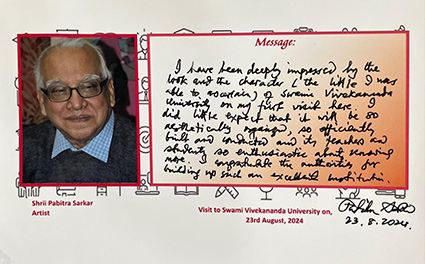 Message:
I have been deeply impressed by the
look and the character (the little I was
able to ascertain) of Swami Vivekananda
University on my first visit here. I
did little expect that it will be so
aesthetically organized, so efficiently
built and conducted and its teachers and
students so enthusiastic about learning
more. I congratulate the authority for
building up such an excellent institution.
Shrii Pabitra Sarkar
Artist
Visit to Swami Vivekananda University on,
23rd August, 2024
23.8.2024.